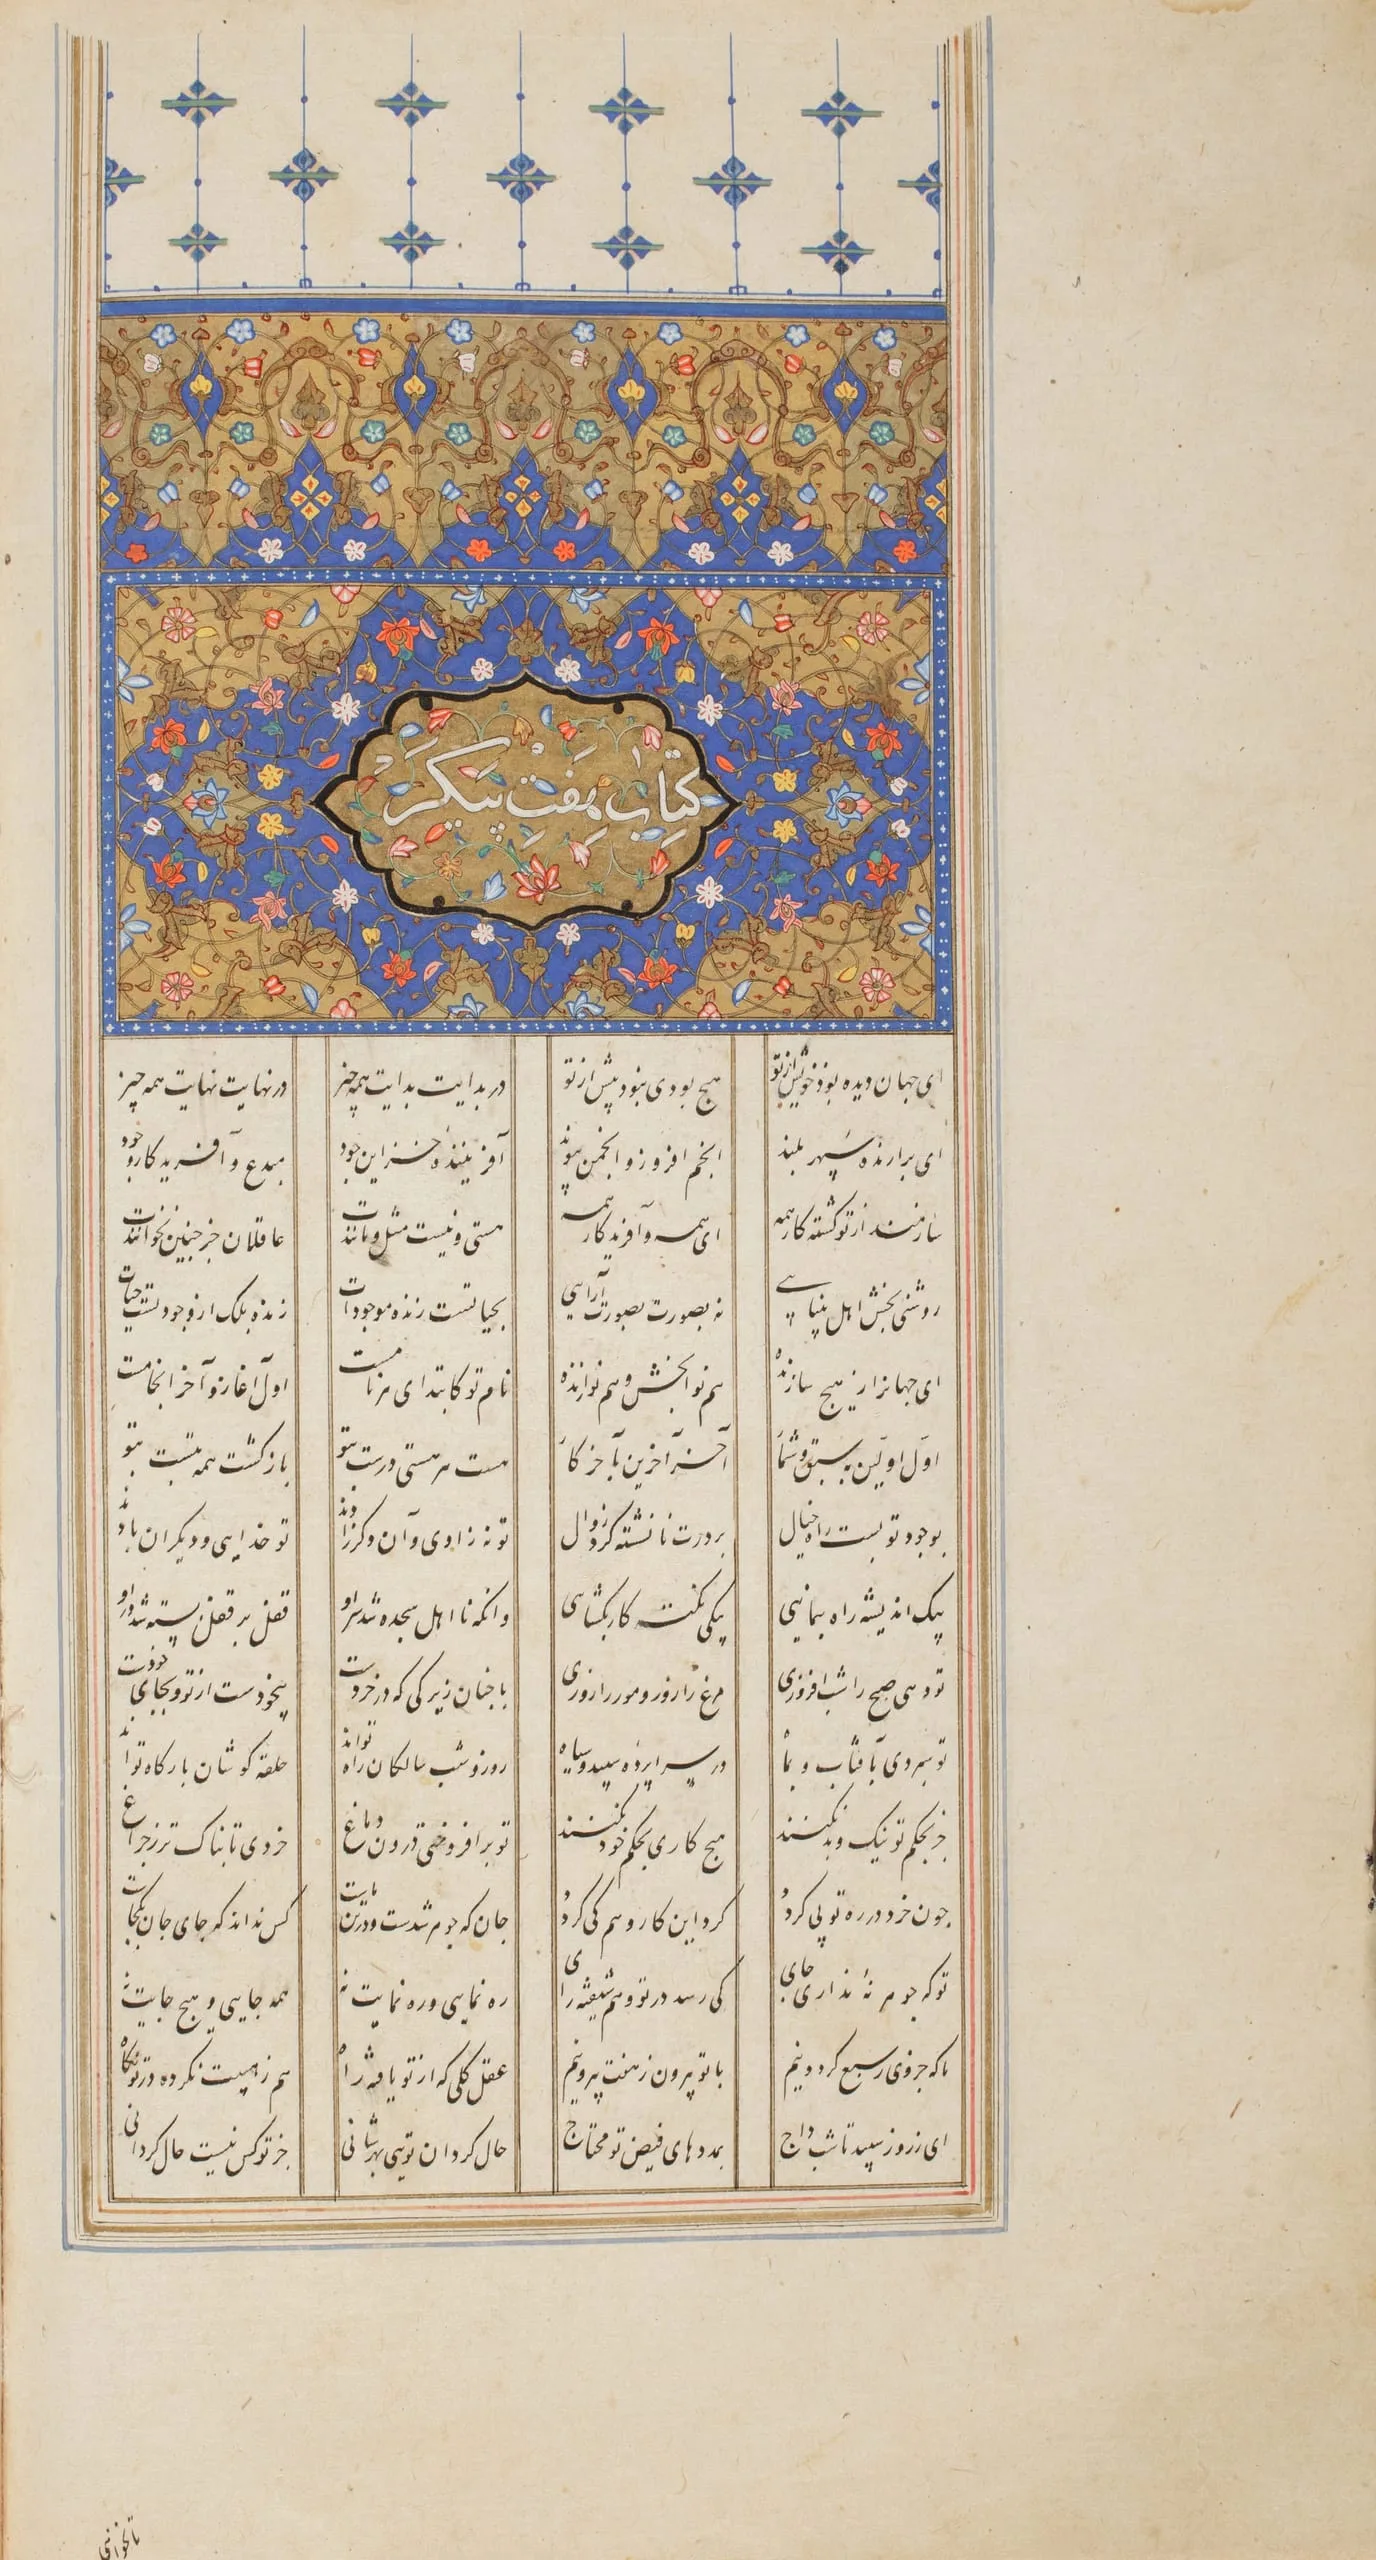 کتاب هفت پیکر
ای جهان دیده بود خویش از تو هیچ بودی نبود پیش از تو در بدایت بدایت همه چیز در نهایت نهایت همه چیز
ای برارنده سپهر بلند انجم افروز و انجمن پیوند آفریننده خزاین جود مبدع و آفریدکار وجود
سازمند از تو کشته کار همه ای همه و آفریدکار همه هستی و نیست مثل و مانندت عاقلان جز چنین نخوانندت
روشنی بخش اهل بینایی نه بصورت بصورت آرایی بحیاتست زنده موجودات زنده بلک از وجود تست حیات
ای جهانرا ز هیچ سازنده هم نوابخش و هم نوازنده نام تو کابتدای هر نامست اول آغاز و آخر انجامست
اول اولین به سبق و شمار آخر آخرین بآخر کار هست هر هستی درست بتو بازکشت همه بتست بتو
بوجود تو بست راه خیال بر درت نانشسته کرد زوال تو نه زادی و آن دکر زادند تو خدایی و دیکران بادند
بیک اندیشه راه بنمایی بیکی نکته کار بکشایی وانکه نااهل سجده شد سر او قفل بر قفل بسته شد در او
تو دهی صبح را شب افروزی مرغ را روز و مور را روزی با چنان زیرکی که در خردست بیخودست از تو و بجای خودست
تو سپردی بآفتاب و بماه در سراپرده سپید و سیاه روز و شب سالکان راه تواند حلقه کوشان بارکاه تواند
جز بحکم تو نیک و بد نکنند هیچ کاری بحکم خود نکنند تو برافروختی درون دماغ خردی تابناک تر ز چراغ
چون خرد در ره تو پی کردد کرد این کار وهم کی کردد جان که جوهر شدست و در تن ماست کس نداند که جای جان بکجاست
تو که جوهر نۀ نداری جای کی رسد در تو وهم شیفته رای ره نمایی و ره نمایت نه همه جایی و هیچ جایت نه
ما که جزوی ز سبع کردونیم با تو بیرون ز هفت بیرونیم عقل کلی که از تو یافته راه هم ز هیبت نکرده در تو نکاه
ای ز روز سپید تا شب داج بمددهای فیض تو محتاج حال کردان تویی بهر شانی جز تو کس نیست حال کردانی
تا نخوانی